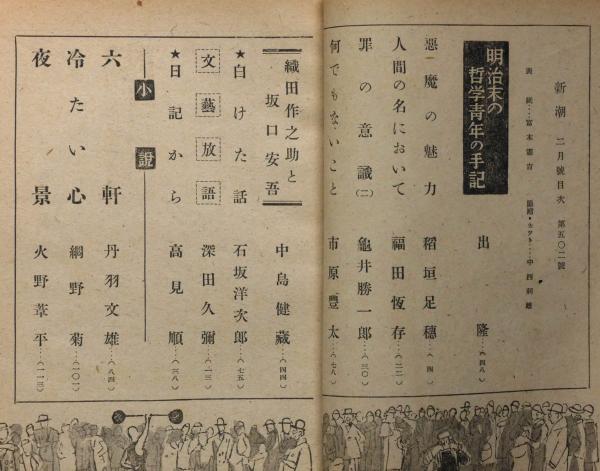 新潮 二月號目次 第五〇二號
表紙…富本憲吉 扉繪・カット…中西利雄
明治末の哲学青年の手記 出隆…(四八)
惡魔の魅力 稻垣足穗…(四)
人間の名において 福田恆存…(二二)
罪の意識(二) 龜井勝一郎…(三〇)
何でもないこと 市原豐太…(七八)
織田作之助と坂口安吾 中島健藏…(四四)
★白けた話 石坂洋次郎…(七五)
文藝放語 深田久彌…(一三)
★日記から 高見順…(三八)
小說
六軒 丹羽文雄…(八四)
冷たい心 網野菊…(一〇一)
夜景 火野葦平…(一一三)